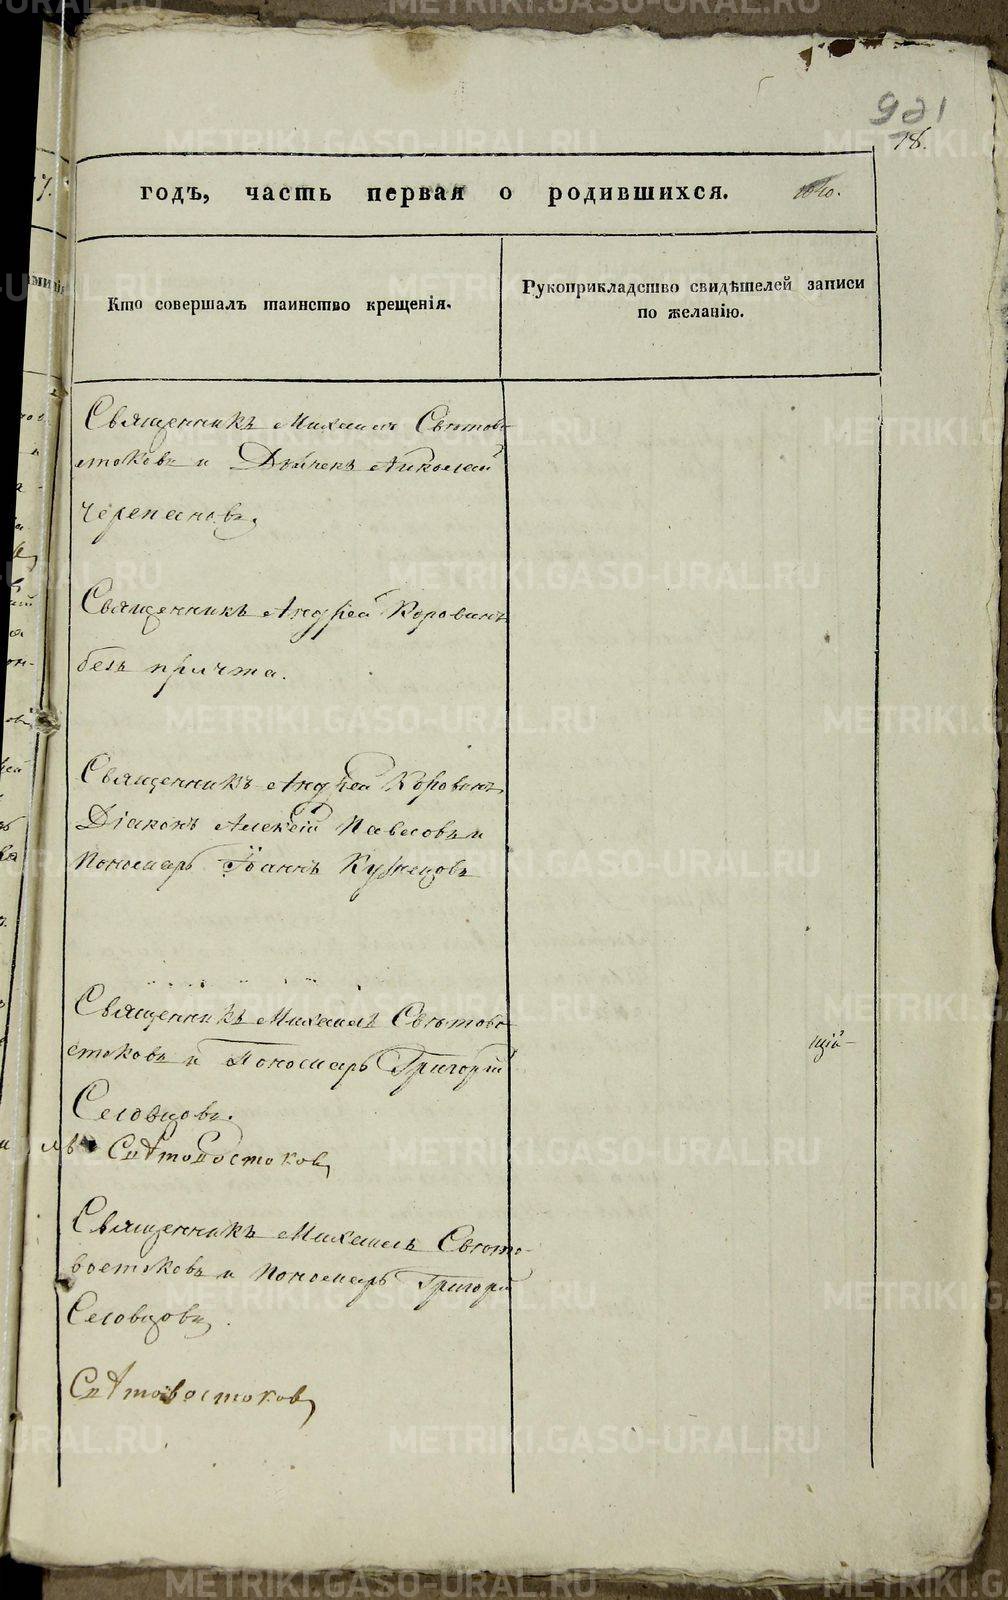 921
18.
годъ, часть первая о родившихся. 1840.
Кто совершалъ таинство крещенія.
Рукоприкладство свидѣтелей записи
по желанію.
Священникъ Михаилъ Свѣтово-
стоковъ и Дьячекъ Николай
Черепановъ.
Священникъ Андрей Коровинъ
безъ причта.
Священникъ Андрей Коровинъ,
Діаконъ Алексій Павловъ и
Пономарь Іоаннъ Кузнецовъ
Священникъ Михаилъ Свѣтово-
стоковъ и Пономарь Григорій
Селовцовъ.
щій-
Свѣтовостоковъ
Священникъ Михаилъ Свѣто-
востоковъ и Пономарь Григорій
Селовцовъ.
Свѣтовостоковъ
METRIKI.GASO-URAL.RU